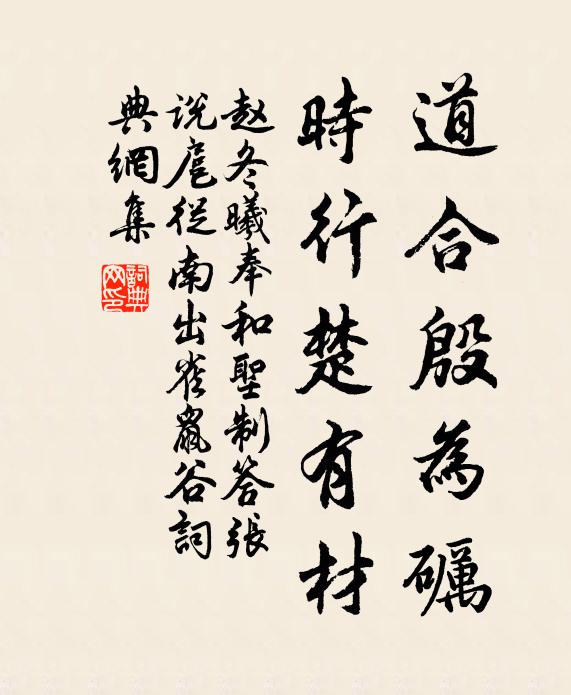 道合殷為礪
時行楚有材
赵冬曦奉和聖制答張
说扈從南出雀鼠谷詞
典網集
詞典
网印